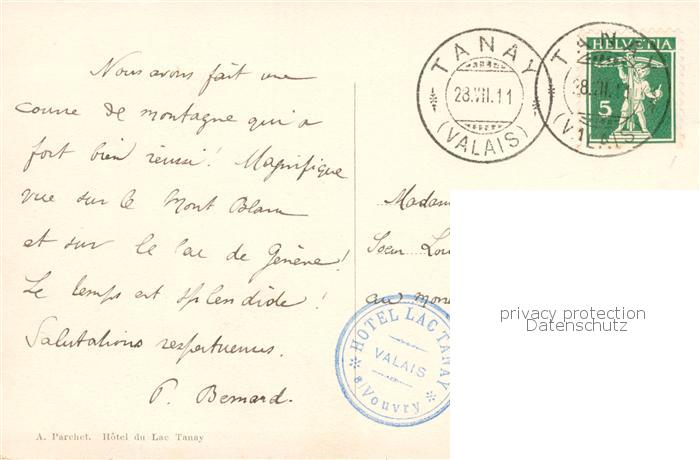 Nous avons fait une
course de montagne qui a
fort bien réussi! Magnifique
vue sur le Mont Blanc
et sur le lac de Genève!
Le temps est splendide!
Salutations respectueuses.
P. Bernard.
A. Parchet. Hôtel du Lac Tanay
TANAY
28.VII.11
(VALAIS)
TANAY
28.VII.11
(VALAIS)
HELVETIA
5
Madam
Soeur Lou
au Mon
HOTEL LAC TANAY
VALAIS
s/Vouvry
privacy protection
Datenschutz